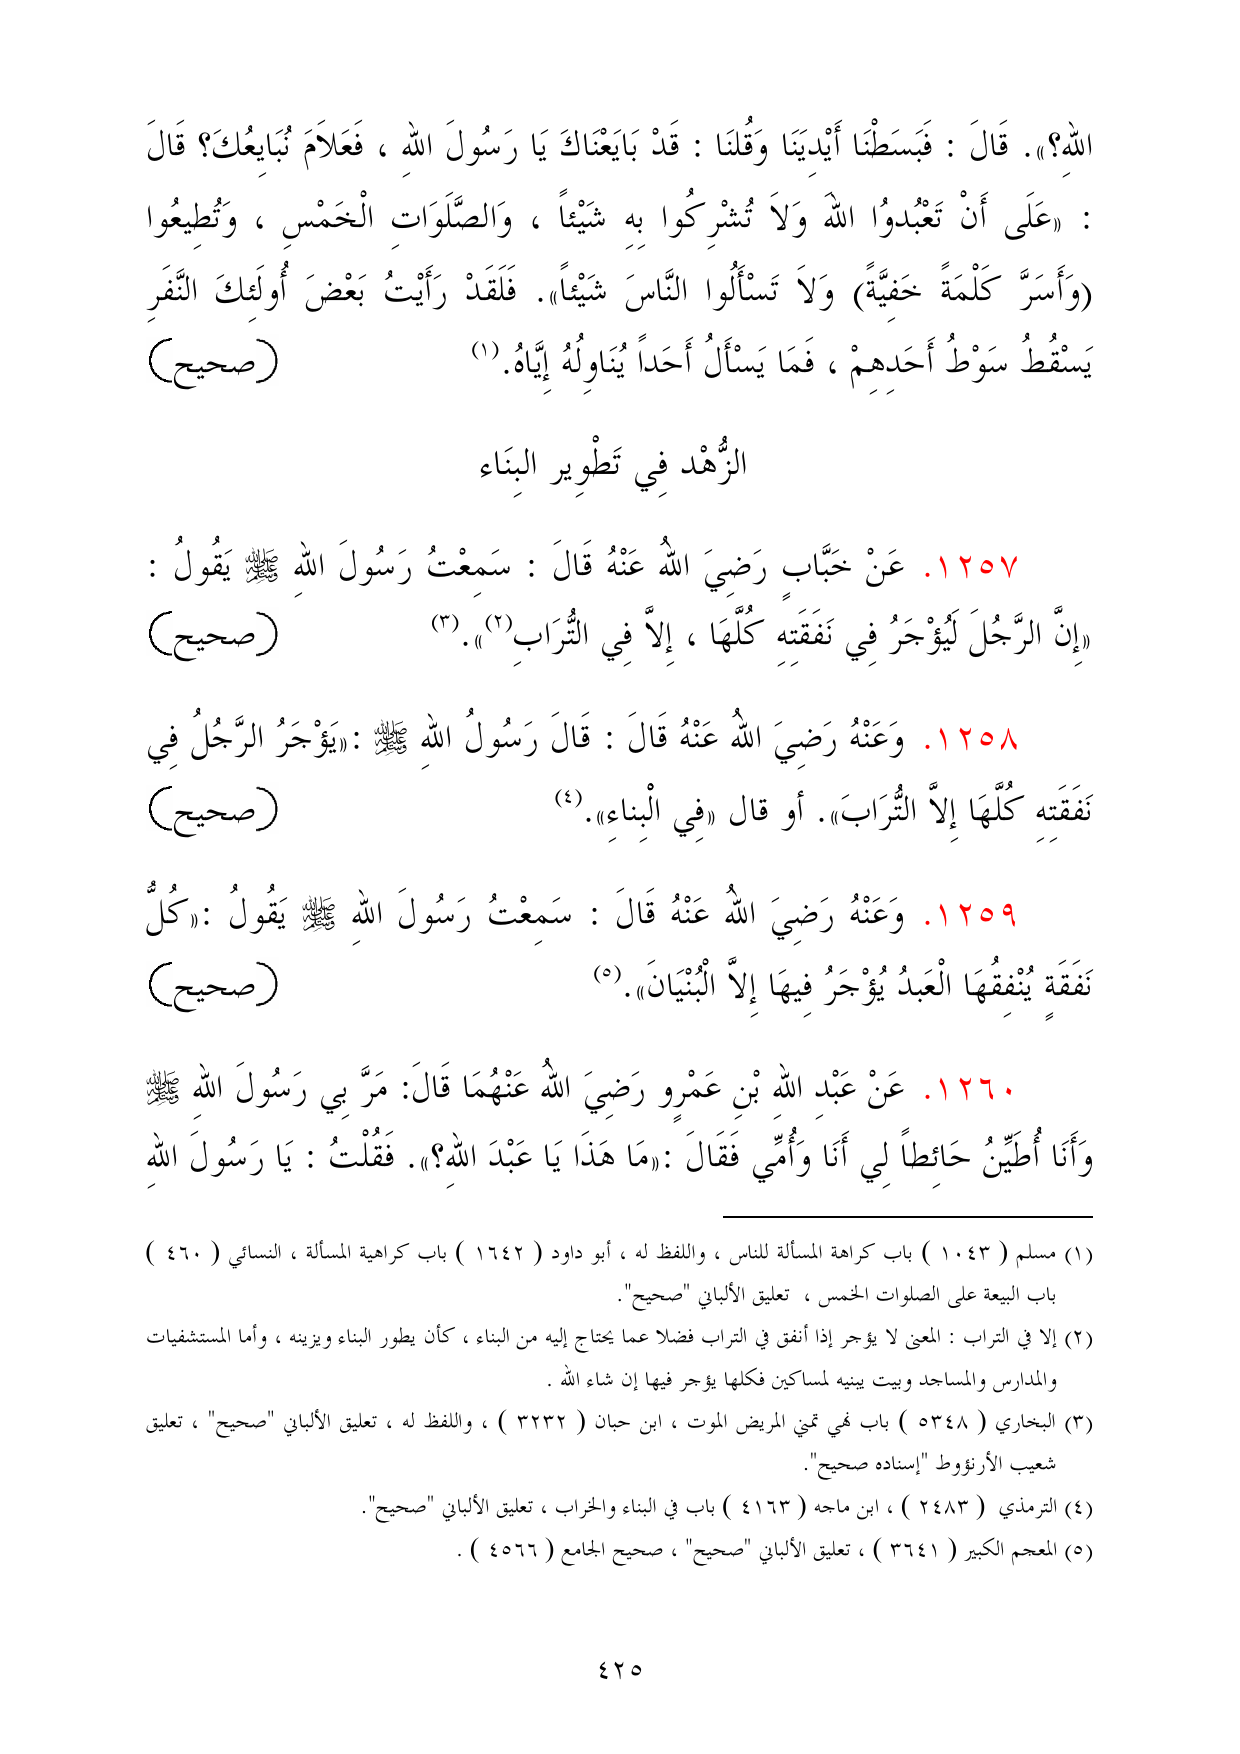 اللهِ؟». قَالَ : فَبَسَطْنَا أَيْدِيَنَا وَقُلنَا : قَدْ بَايَعْنَاكَ يَا رَسُولَ اللهِ ، فَعَلاَمَ نُبَايِعُكَ؟ قَالَ
: «عَلَى أَنْ تَعْبُدوُا اللهَ وَلاَ تُشْرِكُوا بِهِ شَيْئاً ، وَالصَّلَوَاتِ الْخَمْسِ ، وَتُطِيعُوا
(وَأَسَرَّ كَلْمَةً خَفِيَّةً) وَلاَ تَسْأَلُوا النَّاسَ شَيْئاً». فَلَقَدْ رَأَيْتُ بَعْضَ أُولَئِكَ النَّفَرِ
يَسْقُطُ سَوْطُ أَحَدِهِمْ ، فَمَا يَسْأَلُ أَحَداً يُنَاوِلُهُ إِيَّاهُ.(١) (صحيح)
الزُّهْد فِي تَطْوِير البِنَاء
١٢٥٧. عَنْ خَبَّابٍ رَضِيَ اللهُ عَنْهُ قَالَ : سَمِعْتُ رَسُولَ اللهِ ﷺ يَقُولُ :
«إِنَّ الرَّجُلَ لَيُؤْجَرُ فِي نَفَقَتِهِ كُلَّهَا ، إِلاَّ فِي التُّرَابِ(٢)».(٣) (صحيح)
١٢٥٨. وَعَنْهُ رَضِيَ اللهُ عَنْهُ قَالَ : قَالَ رَسُولُ اللهِ ﷺ :«يَؤْجَرُ الرَّجُلُ فِي
نَفَقَتِهِ كُلَّهَا إِلاَّ التُّرَابَ». أو قال «فِي الْبِناءِ».(٤) (صحيح)
١٢٥٩. وَعَنْهُ رَضِيَ اللهُ عَنْهُ قَالَ : سَمِعْتُ رَسُولَ اللهِ ﷺ يَقُولُ :«كُلُّ
نَفَقَةٍ يُنْفِقُهَا الْعَبدُ يُؤْجَرُ فِيهَا إِلاَّ الْبُنْيَانَ».(٥) (صحيح)
١٢٦٠. عَنْ عَبْدِ اللهِ بْنِ عَمْرٍو رَضِيَ اللهُ عَنْهُمَا قَالَ: مَرَّ بِي رَسُولَ اللهِ ﷺ
وَأَنَا أُطَيِّنُ حَائِطاً لِي أَنَا وَأُمِّي فَقَالَ :«مَا هَذَا يَا عَبْدَ اللهِ؟». فَقُلْتُ : يَا رَسُولَ اللهِ
(١) مسلم ( ١٠٤٣ ) باب كراهة المسألة للناس ، واللفظ له ، أبو داود ( ١٦٤٢ ) باب كراهية المسألة ، النسائي ( ٤٦٠ )
باب البيعة على الصلوات الخمس ، تعليق الألباني "صحيح".
(٢) إلا في التراب : المعنى لا يؤجر إذا أنفق في التراب فضلا عما يحتاج إليه من البناء ، كأن يطور البناء ويزينه ، وأما المستشفيات
والمدارس والمساجد وبيت يبنيه لمساكين فكلها يؤجر فيها إن شاء الله .
(٣) البخاري ( ٥٣٤٨ ) باب نهي تمني المريض الموت ، ابن حبان ( ٣٢٣٢ ) ، واللفظ له ، تعليق الألباني "صحيح" ، تعليق
شعيب الأرنؤوط "إسناده صحيح".
(٤) الترمذي ( ٢٤٨٣ ) ، ابن ماجه ( ٤١٦٣ ) باب في البناء والخراب ، تعليق الألباني "صحيح".
(٥) المعجم الكبير ( ٣٦٤١ ) ، تعليق الألباني "صحيح" ، صحيح الجامع ( ٤٥٦٦ ) .
٤٢٥